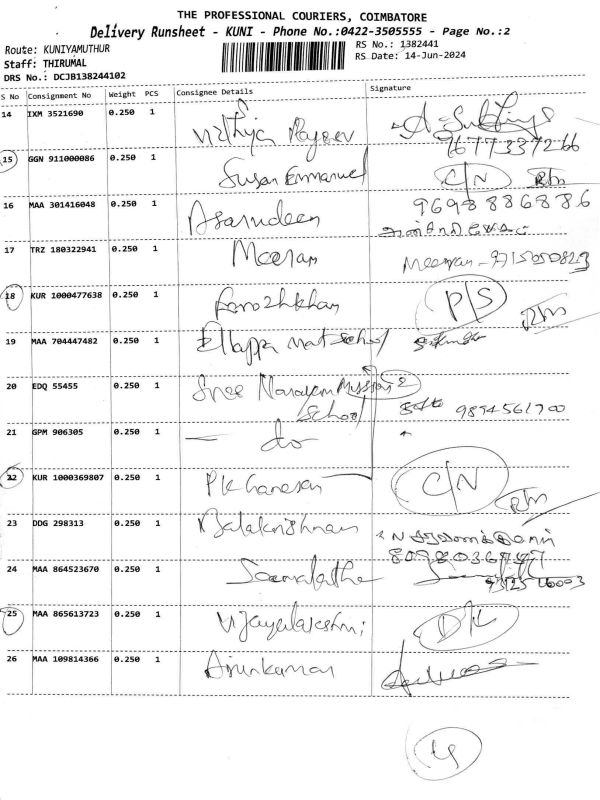 THE PROFESSIONAL COURIERS, COIMBATORE
Delivery Runsheet - KUNI - Phone No.:0422-3505555 - Page No.:2
Route: KUNIYAMUTHUR
RS No.: 1382441
Staff: THIRUMAL
RS Date: 14-Jun-2024
DRS No.: DCJB138244102
S No Consignment No Weight PCS Consignee Details Signature
14 IXM 3521690 0.250 1 Vithya Rajeev
15 GGN 911000086 0.250 1 Susan Emmanuel C/N
16 MAA 301416048 0.250 1 Asarudeen 9698886886
17 TRZ 180322941 0.250 1 Meeran Meeran - 9715050823
18 KUR 1000477638 0.250 1 Ferozhkhan P/S
19 MAA 704447482 0.250 1 Ellappa mat school
20 EDQ 55455 0.250 1 Sree Narayan Mission 2
School 9894561700
21 GPM 906305 0.250 1 — do —
22 KUR 1000369807 0.250 1 PK Ganesan C/N
23 DDG 298313 0.250 1 Balakrishnan
24 MAA 864523670 0.250 1
25 MAA 865613723 0.250 1 Vijayalakshmi D/L
26 MAA 109814366 0.250 1 Arunkumar
4